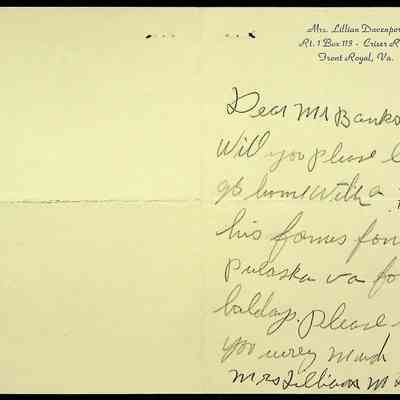 Mrs. Lillian Davenpor
Rt. 1 Box 113 - Criser R
Front Royal, Va.
Dear Mr Banks
Will you please l
go home with a
his fomes fon
Pulaska va fo
baldap. Please
you wrey much
Mrs Lillian M